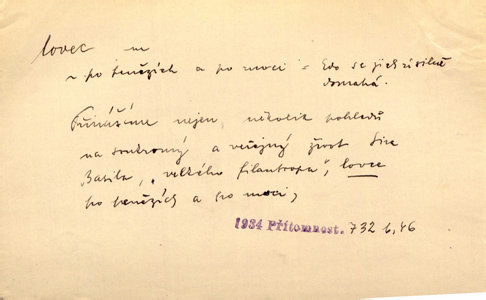 lovec m
~ po penězích a po moci = kdo se jich zištně
domahá.
Přinášíme nejen několik pohledů
na soukromý a veřejný život Sira
Basila, „velkého filantropa“, lovce
po penězích a po moci,
1934 Přítomnost. 732 b, 46